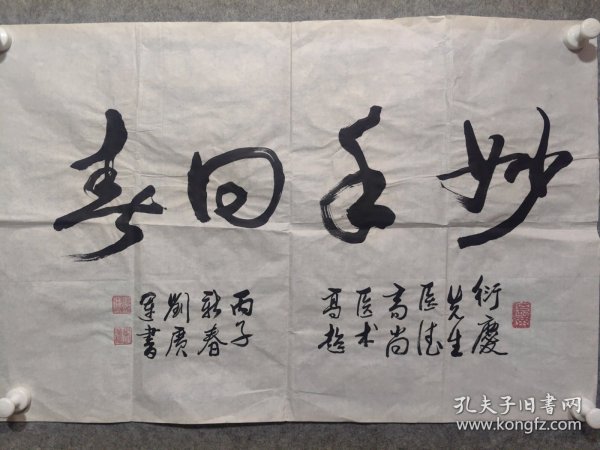 妙手回春
衍慶
先生
医德
高尚
医术
高超
丙子
新春
劉广
運書
孔夫子旧书网
www.kongfz.com